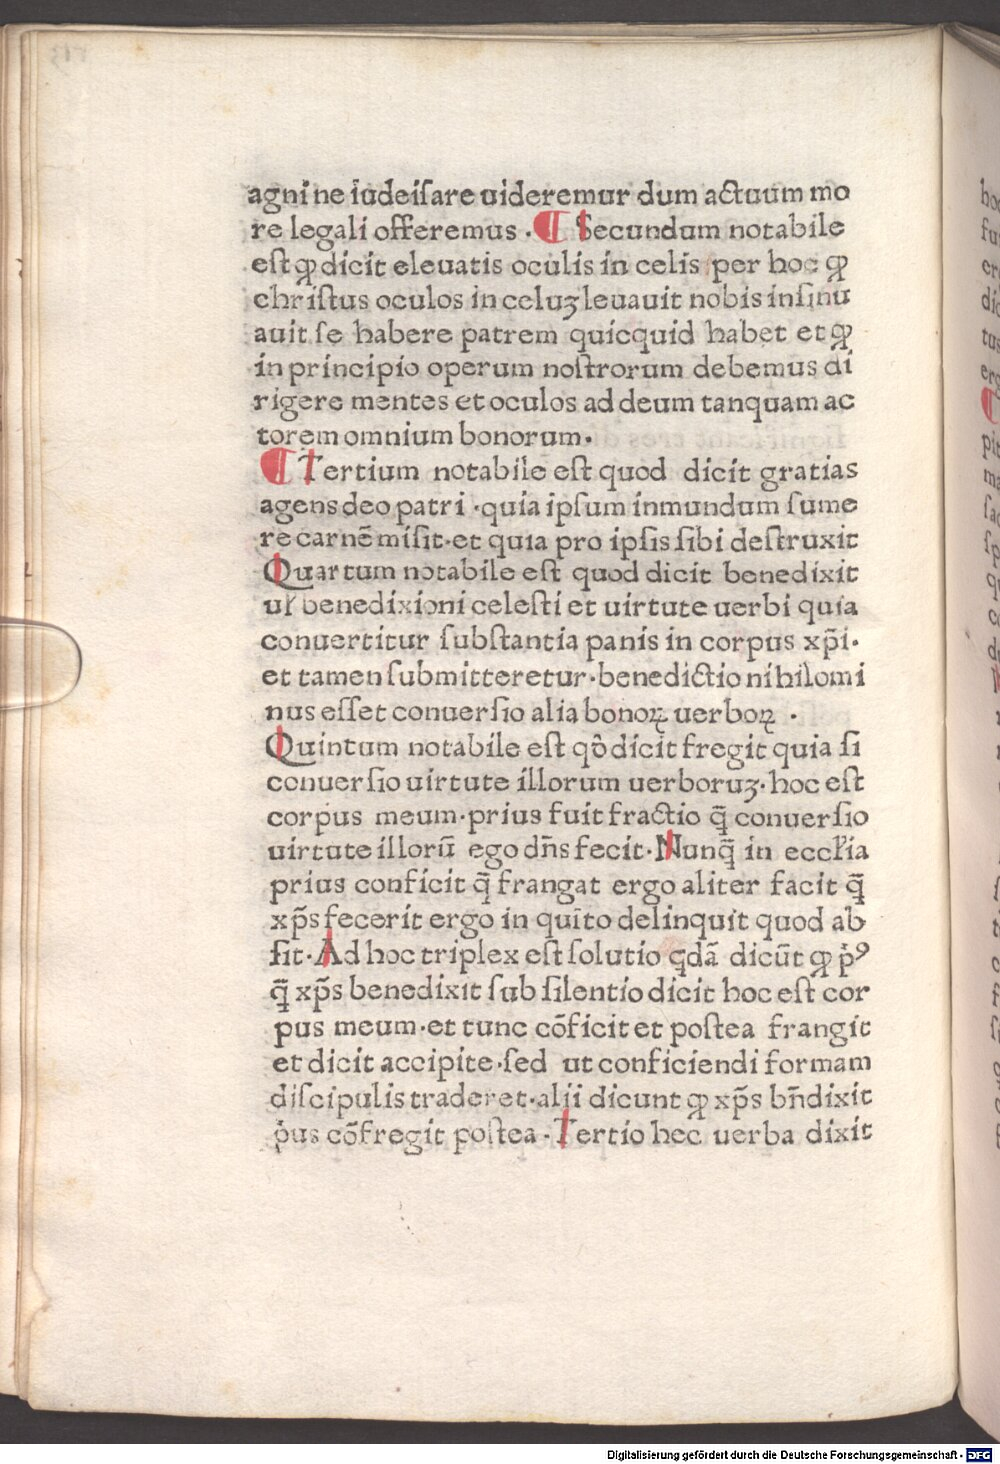 agni ne iudeiſare uideremur dum actuum mo
re legali offeremus · ¶ Secundum notabile
eſt ꝙ dicit eleuatis oculis in celis per hoc ꝙ
chriſtus oculos in celuꝫ leuauit nobis inſinu
auit ſe habere patrem quicquid habet et ꝙ
in principio operum noſtrorum debemus di
rigere mentes et oculos ad deum tanquam ac
torem omnium bonorum·
¶ Tertium notabile eſt quod dicit gratias
agens deo patri ·quia ipſum in mundum ſume
re carnē miſit·et quia pro ipſis ſibi deſtruxit
Quartum notabile eſt quod dicit benedixit
ul̄ benedixioni celeſti et uirtute uerbi quia
conuertitur ſubſtantia panis in corpus xp̄i·
et tamen ſubmitteretur·benedictio nihilomi
nus eſſet conuerſio alia bonoꝝ uerboꝝ ·
Quintum notabile eſt qǒ dicit fregit quia ſi
conuerſio uirtute illorum uerboruꝫ·hoc eſt
corpus meum·prius fuit fractio q̄ conuerſio
uirtute illorū ego dn̄s fecit·Nunq̄ in eccľia
prius conficit q̄ frangat ergo aliter facit q̄
xp̄s fecerit ergo in quito delinquit quod ab
ſit·Ad hoc triplex eſt ſolutio qdā dicūt ꝙ p̓ꝰ
q̄ xp̄s benedixit ſub ſilentio dicit hoc eſt cor
pus meum·et tunc cōficit et poſtea frangit
et dicit accipite·ſed ut conficiendi formam
diſcipulis traderet·alii dicunt ꝙ xp̄s bn̄dixit
p̓us cōfregit poſtea·Tertio hec uerba dixit
Digitalisierung gefördert durch die Deutsche Forschungsgemeinschaft - DFG